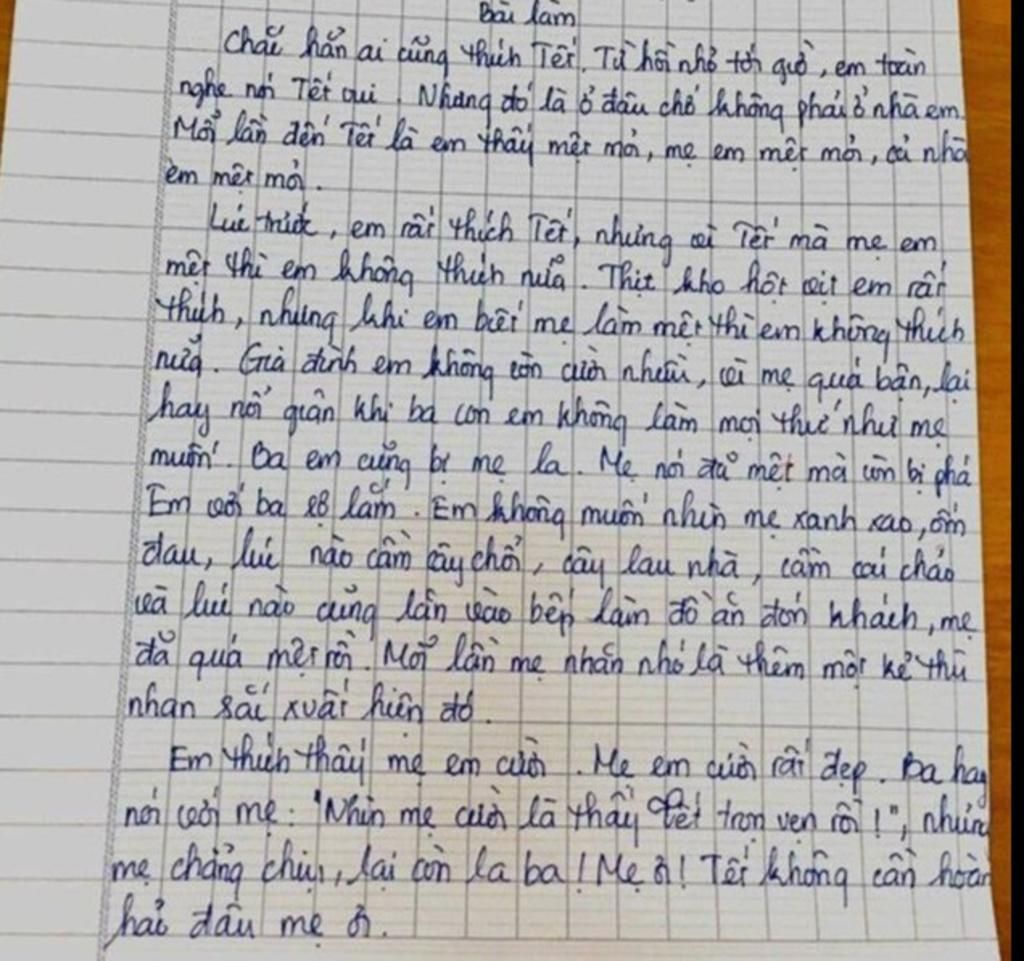 Bài làm
Chắc hẳn ai cũng thích Tết. Từ hồi nhỏ tới giờ, em toàn
nghe nói Tết vui. Nhưng đó là ở đâu chớ không phải ở nhà em.
Mỗi lần đến Tết là em thấy mệt mỏi, mẹ em mệt mỏi, cả nhà
em mệt mỏi.
Lúc trước, em rất thích Tết, nhưng vì Tết mà mẹ em
mệt thì em không thích nữa. Thịt kho hột vịt em rất
thích, nhưng khi em biết mẹ làm mệt thì em không thích
nữa. Gia đình em không còn cười nhiều, vì mẹ quá bận, lại
hay nổi giận khi ba con em không làm mọi thứ như mẹ
muốn. Ba em cũng bị mẹ la. Mẹ nói đã mệt mà còn bị phá
Em với ba sợ lắm. Em không muốn nhìn mẹ xanh xao, ốm
đau, lúc nào cầm cây chổi, cây lau nhà, cầm cái chảo
và lúc nào cũng lăn vào bếp làm đồ ăn đón khách, mẹ
đã quá mệt rồi. Mỗi lần mẹ nhăn nhó là thêm một kẻ thù
nhan sắc xuất hiện đó.
Em thích thấy mẹ em cười. Mẹ em cười rất đẹp. Ba hay
nói với mẹ: "Nhìn mẹ cười là thấy Tết trọn vẹn rồi!", nhưng
mẹ chẳng chịu, lại còn la ba! Mẹ ơi! Tết không cần hoàn
hảo đâu mẹ ơi.